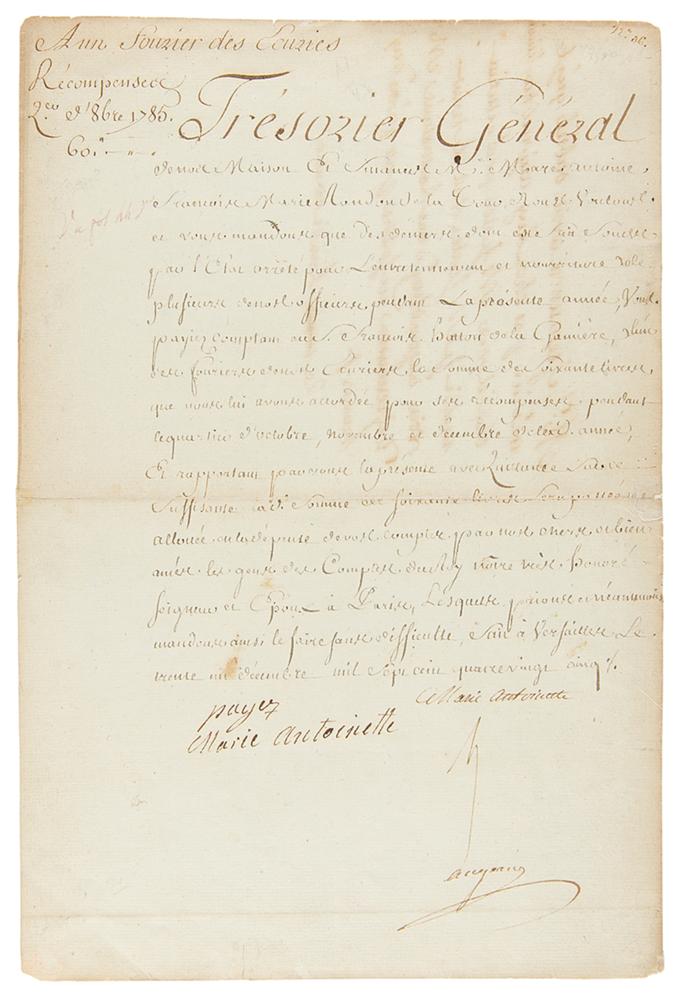 A un fourier des Ecuries
Récompenses
Qer d'8bre 1785.
60.ᴸ
Trésorier Général
de notre Maison Et finances Mr. Marc antoine
françois Marie Randon de la Tour Nous Voulons
et vous mandons que des deniers dont est fait fonds
par l'Etat arrêté pour L'entretenement et nourriture de
plusieurs de nos officiers pendant La présente année, Vous
payiez comptant au S. françois hatton de la Gainière, L'un
des fouriers de nos Ecuries, la Somme de Soixante livres,
que nous lui avons accordée pour ses récompenses pendant
le quartier d'octobre, novembre et décembre de lad. année,
Et rapportant par vous la présente avec Quittance Sur ce
Suffisante lad. Somme de soixante livres sera passée et
allouée en la dépense de vos comptes par nos chers et bien
amés les gens des Comptes du Roy notre très honoré
Seigneur et Epoux à Paris, Lesquels prions et néantmoins
mandons ainsi le faire sans difficulté, fait à Versailles Le
trente un décembre mil sept cent quatre vingt cinq ./.
Marie Antoinette
payez
Marie Antoinette
augeard